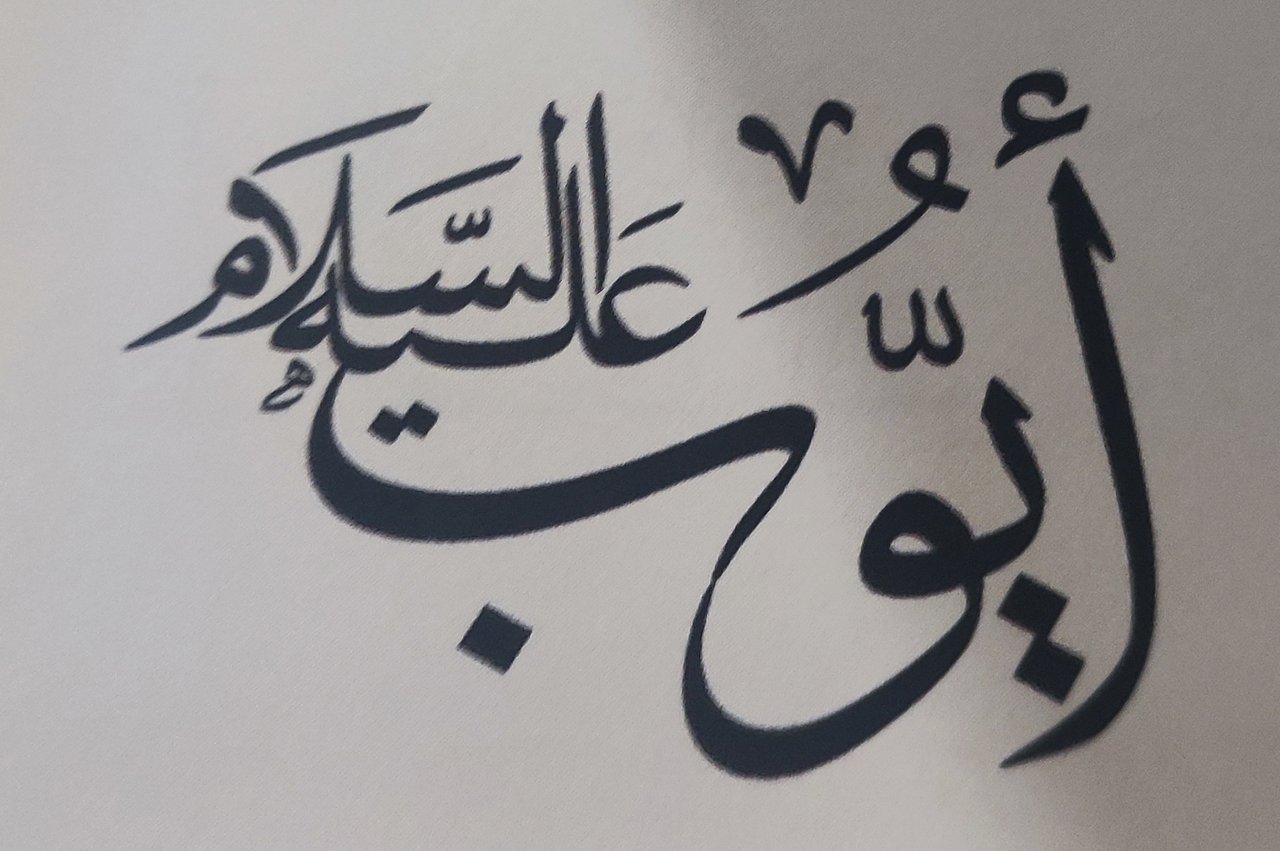 أيُّوب عَليه السَّلام